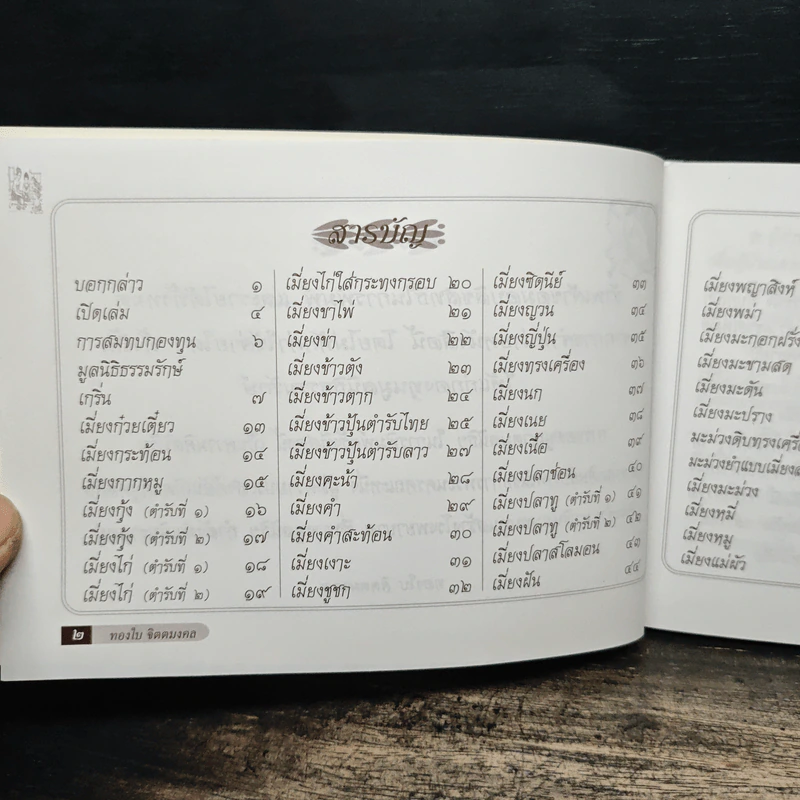 สารบัญ
บอกกล่าว ๑
เปิดเล่ม ๔
การสมทบกองทุน ๖
มูลนิธิธรรมรักษ์
เกริ่น ๗
เมี่ยงก๋วยเตี๋ยว ๑๓
เมี่ยงกระท้อน ๑๔
เมี่ยงกากหมู ๑๕
เมี่ยงกุ้ง (ตำรับที่ ๑) ๑๖
เมี่ยงกุ้ง (ตำรับที่ ๒) ๑๗
เมี่ยงไก่ (ตำรับที่ ๑) ๑๘
เมี่ยงไก่ (ตำรับที่ ๒) ๑๙
เมี่ยงไก่ใส่กระทงกรอบ ๒๐
เมี่ยงขาไพ่ ๒๑
เมี่ยงข่า ๒๒
เมี่ยงข้าวตัง ๒๓
เมี่ยงข้าวตาก ๒๔
เมี่ยงข้าวปุ้นตำรับไทย ๒๕
เมี่ยงข้าวปุ้นตำรับลาว ๒๗
เมี่ยงคะน้า ๒๘
เมี่ยงคำ ๒๙
เมี่ยงคำสะท้อน ๓๐
เมี่ยงเงาะ ๓๑
เมี่ยงชูชก ๓๒
เมี่ยงซิดนีย์ ๓๓
เมี่ยงญวน ๓๔
เมี่ยงญี่ปุ่น ๓๕
เมี่ยงทรงเครื่อง ๓๖
เมี่ยงนก ๓๗
เมี่ยงเนย ๓๘
เมี่ยงเนื้อ ๓๙
เมี่ยงปลาช่อน ๔๐
เมี่ยงปลาทู (ตำรับที่ ๑) ๔๑
เมี่ยงปลาทู (ตำรับที่ ๒) ๔๒
เมี่ยงปลาสโลมอน ๔๓
เมี่ยงฝัน ๔๔
๒ ทองใบ จิตตมงคล
เมี่ยงพญาสิงห์
เมี่ยงพม่า
เมี่ยงมะกอกฝรั่ง
เมี่ยงมะขามสด
เมี่ยงมะดัน
เมี่ยงมะปราง
มะม่วงดิบทรงเครื่
มะม่วงยำแบบเมี่ยง
เมี่ยงมะม่วง
เมี่ยงหมี่
เมี่ยงหมู
เมี่ยงแม่ผัว